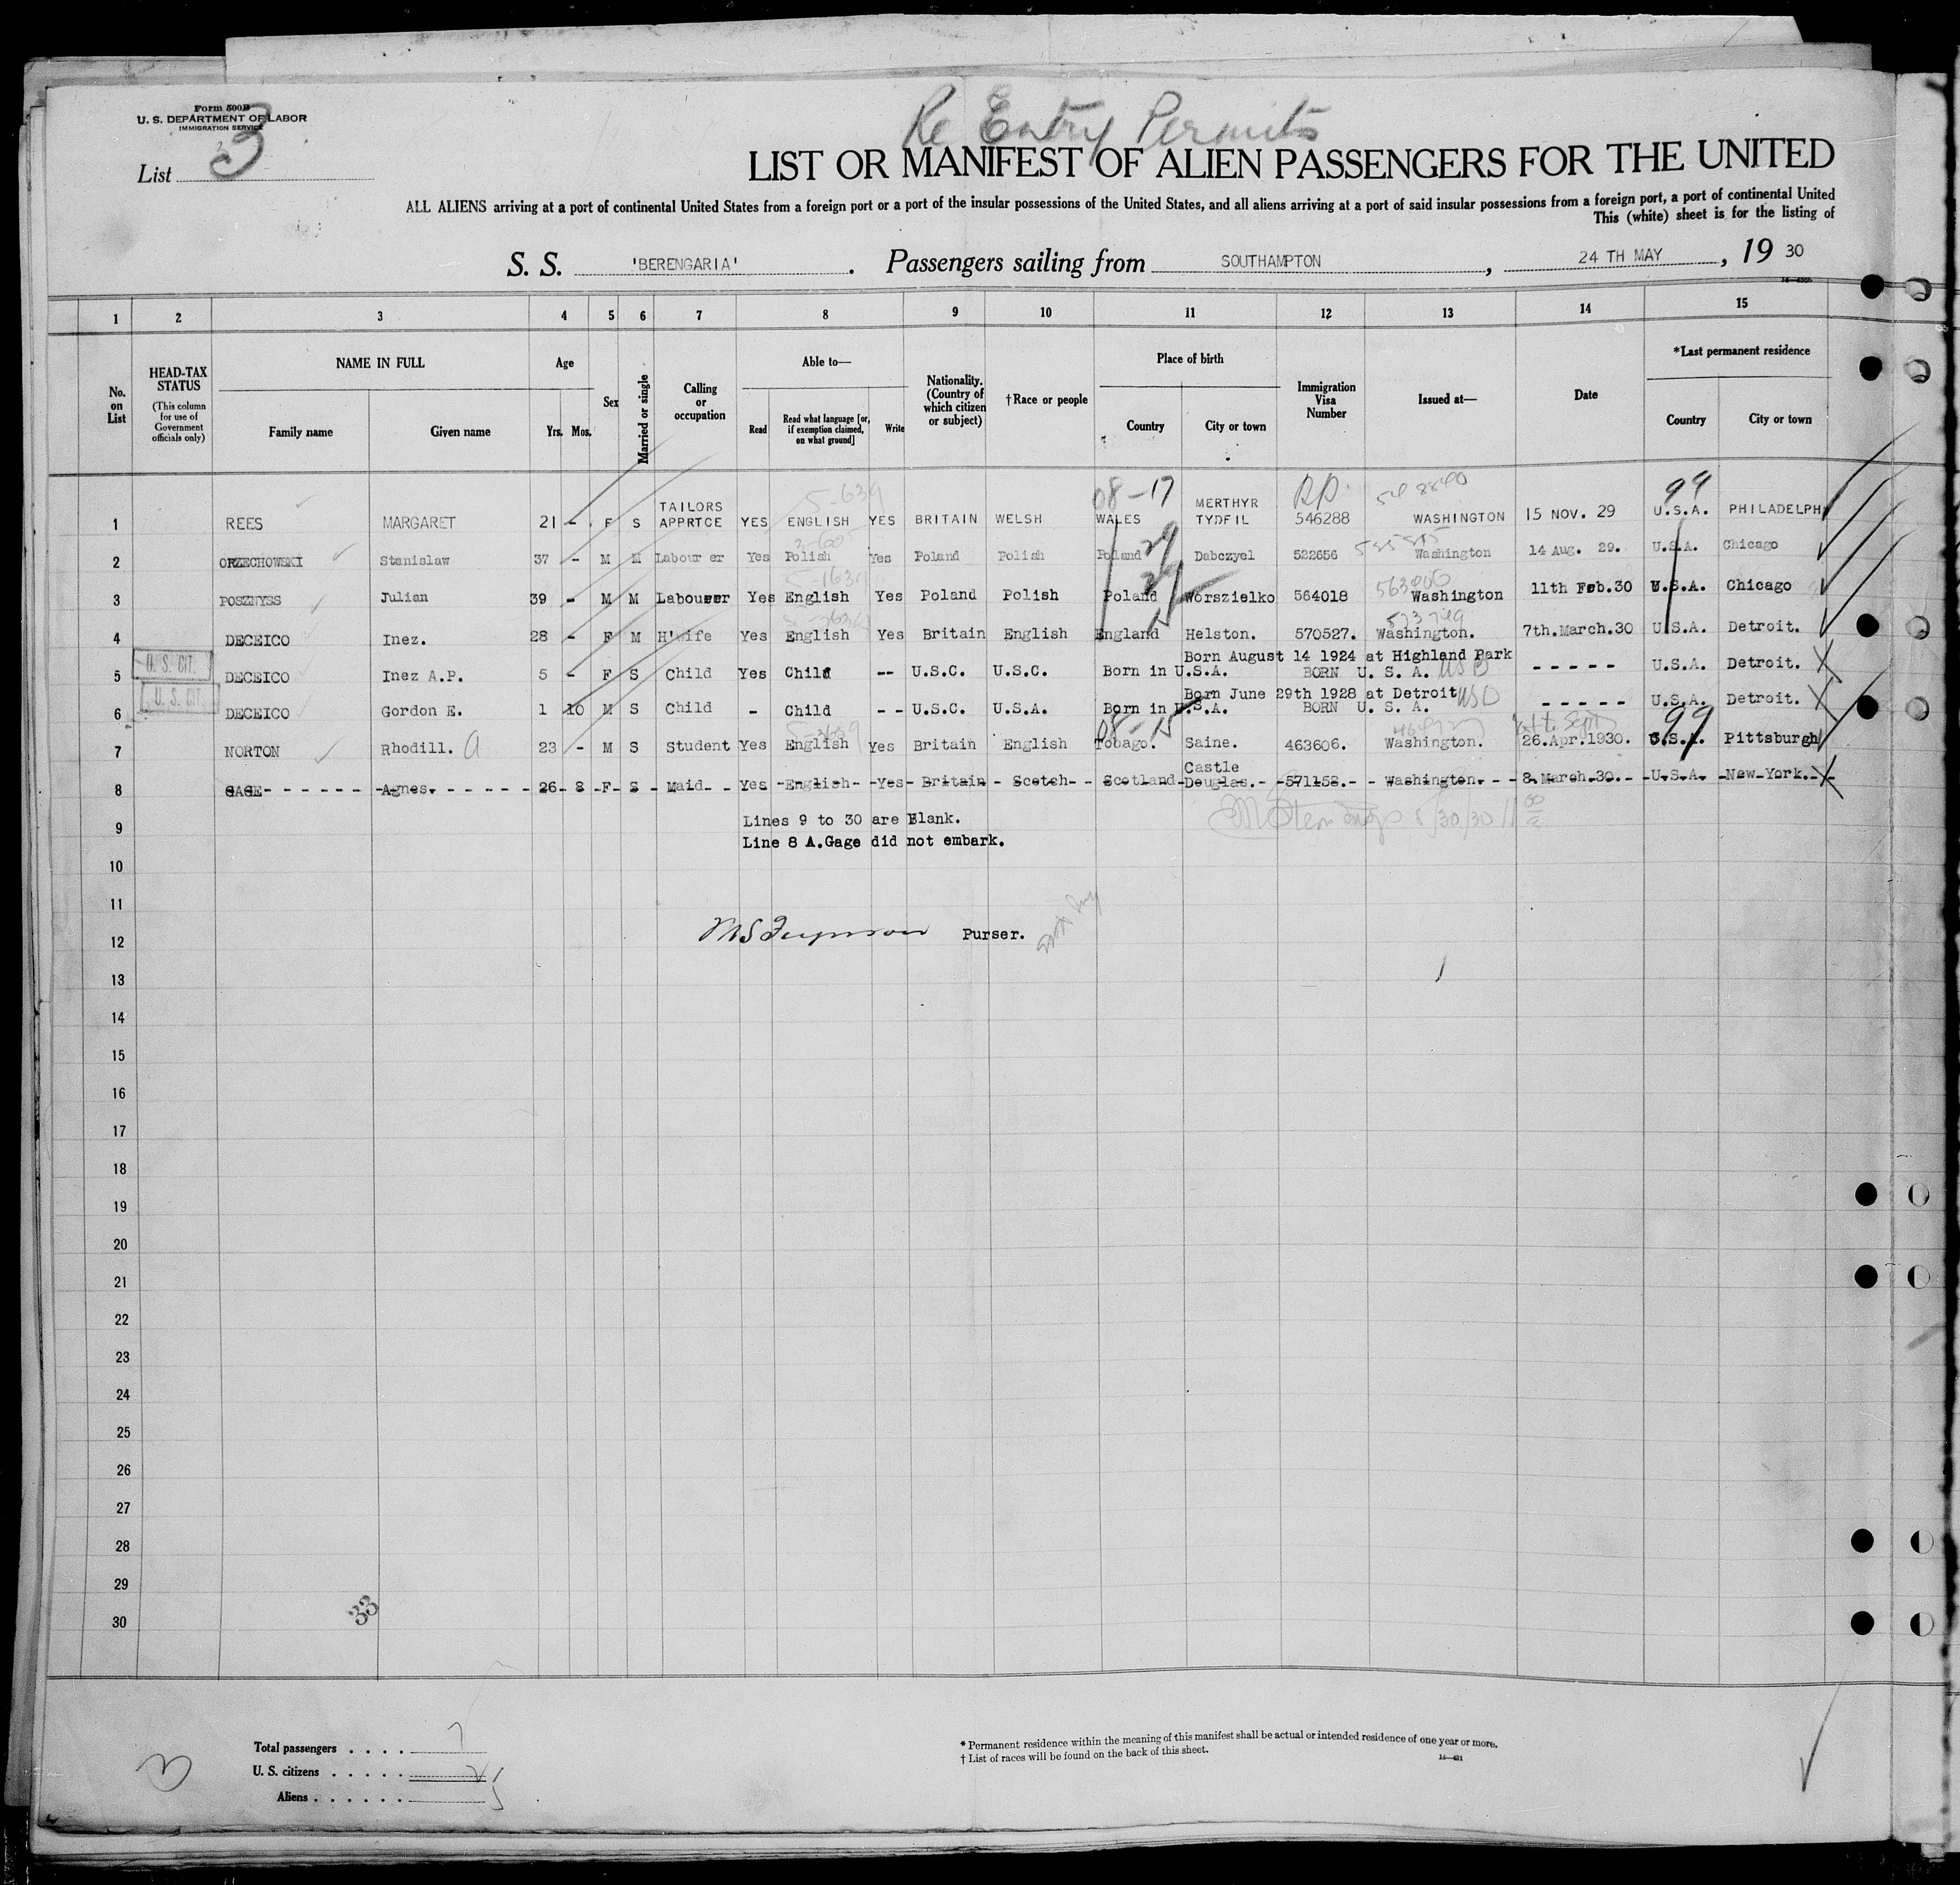 Form 500B
U. S. DEPARTMENT OF LABOR
IMMIGRATION SERVICE
List 3
Re Entry Permits
LIST OR MANIFEST OF ALIEN PASSENGERS FOR THE UNITED
ALL ALIENS arriving at a port of continental United States from a foreign port or a port of the insular possessions of the United States, and all aliens arriving at a port of said insular possessions from a foreign port, a port of continental United
This (white) sheet is for the listing of
S. S. 'BERENGARIA' . Passengers sailing from SOUTHAMPTON , 24 TH MAY , 19 30
1 2 3 4 5 6 7 8 9 10 11 12 13 14 15
No. on List
HEAD-TAX STATUS
(This column for use of Government officials only)
NAME IN FULL
Family name Given name
Age
Yrs. Mos.
Sex
Married or single
Calling or occupation
Able to—
Read Read what language [or, if exemption claimed, on what ground] Write
Nationality. (Country of which citizen or subject)
†Race or people
Place of birth
Country City or town
Immigration Visa Number
Issued at—
Date
*Last permanent residence
Country City or town
08-17 RP 99
1 REES MARGARET 21 - F S TAILORS APPRTCE YES ENGLISH YES BRITAIN WELSH WALES MERTHYR TYDFIL 546288 WASHINGTON 15 NOV. 29 U.S.A. PHILADELPH
2 ORZECHOWSKI Stanislaw 37 - M M Labour er Yes Polish Yes Poland Polish Poland Dabczyel 522656 Washington 14 Aug. 29. U.S.A. Chicago
3 POSZNYSS Julian 39 - M M Labourer Yes English Yes Poland Polish Poland Worszielko 564018 Washington 11th Feb.30 U.S.A. Chicago
4 DECEICO Inez. 28 - F M H'wife Yes English Yes Britain English England Helston. 570527. Washington. 7th.March.30 U.S.A. Detroit.
U. S. CIT.
Born August 14 1924 at Highland Park
5 DECEICO Inez A.P. 5 - F S Child Yes Child -- U.S.C. U.S.C. Born in U.S.A. BORN U. S. A. - - - - - U.S.A. Detroit.
U. S. CIT.
Born June 29th 1928 at Detroit
6 DECEICO Gordon E. 1 10 M S Child - Child - - U.S.C. U.S.A. Born in U.S.A. BORN U. S. A. - - - - - U.S.A. Detroit.
08-15 99
7 NORTON Rhodill. A 23 - M S Student Yes English Yes Britain English Tobago. Saine. 463606. Washington. 26.Apr.1930. U.S.A. Pittsburgh
8 GAGE Agnes. 26 8 F S Maid Yes English Yes Britain Scotch Scotland Castle Douglas. 571158. Washington. 8.March.30. U.S.A. New York.
9 Lines 9 to 30 are Blank.
Line 8 A.Gage did not embark.
10
11
12 Purser.
13
14
15
16
17
18
19
20
21
22
23
24
25
26
27
28
29
30
33
Total passengers . . . . 7
U. S. citizens . . . . . 2
Aliens . . . . . . 5
* Permanent residence within the meaning of this manifest shall be actual or intended residence of one year or more.
† List of races will be found on the back of this sheet.